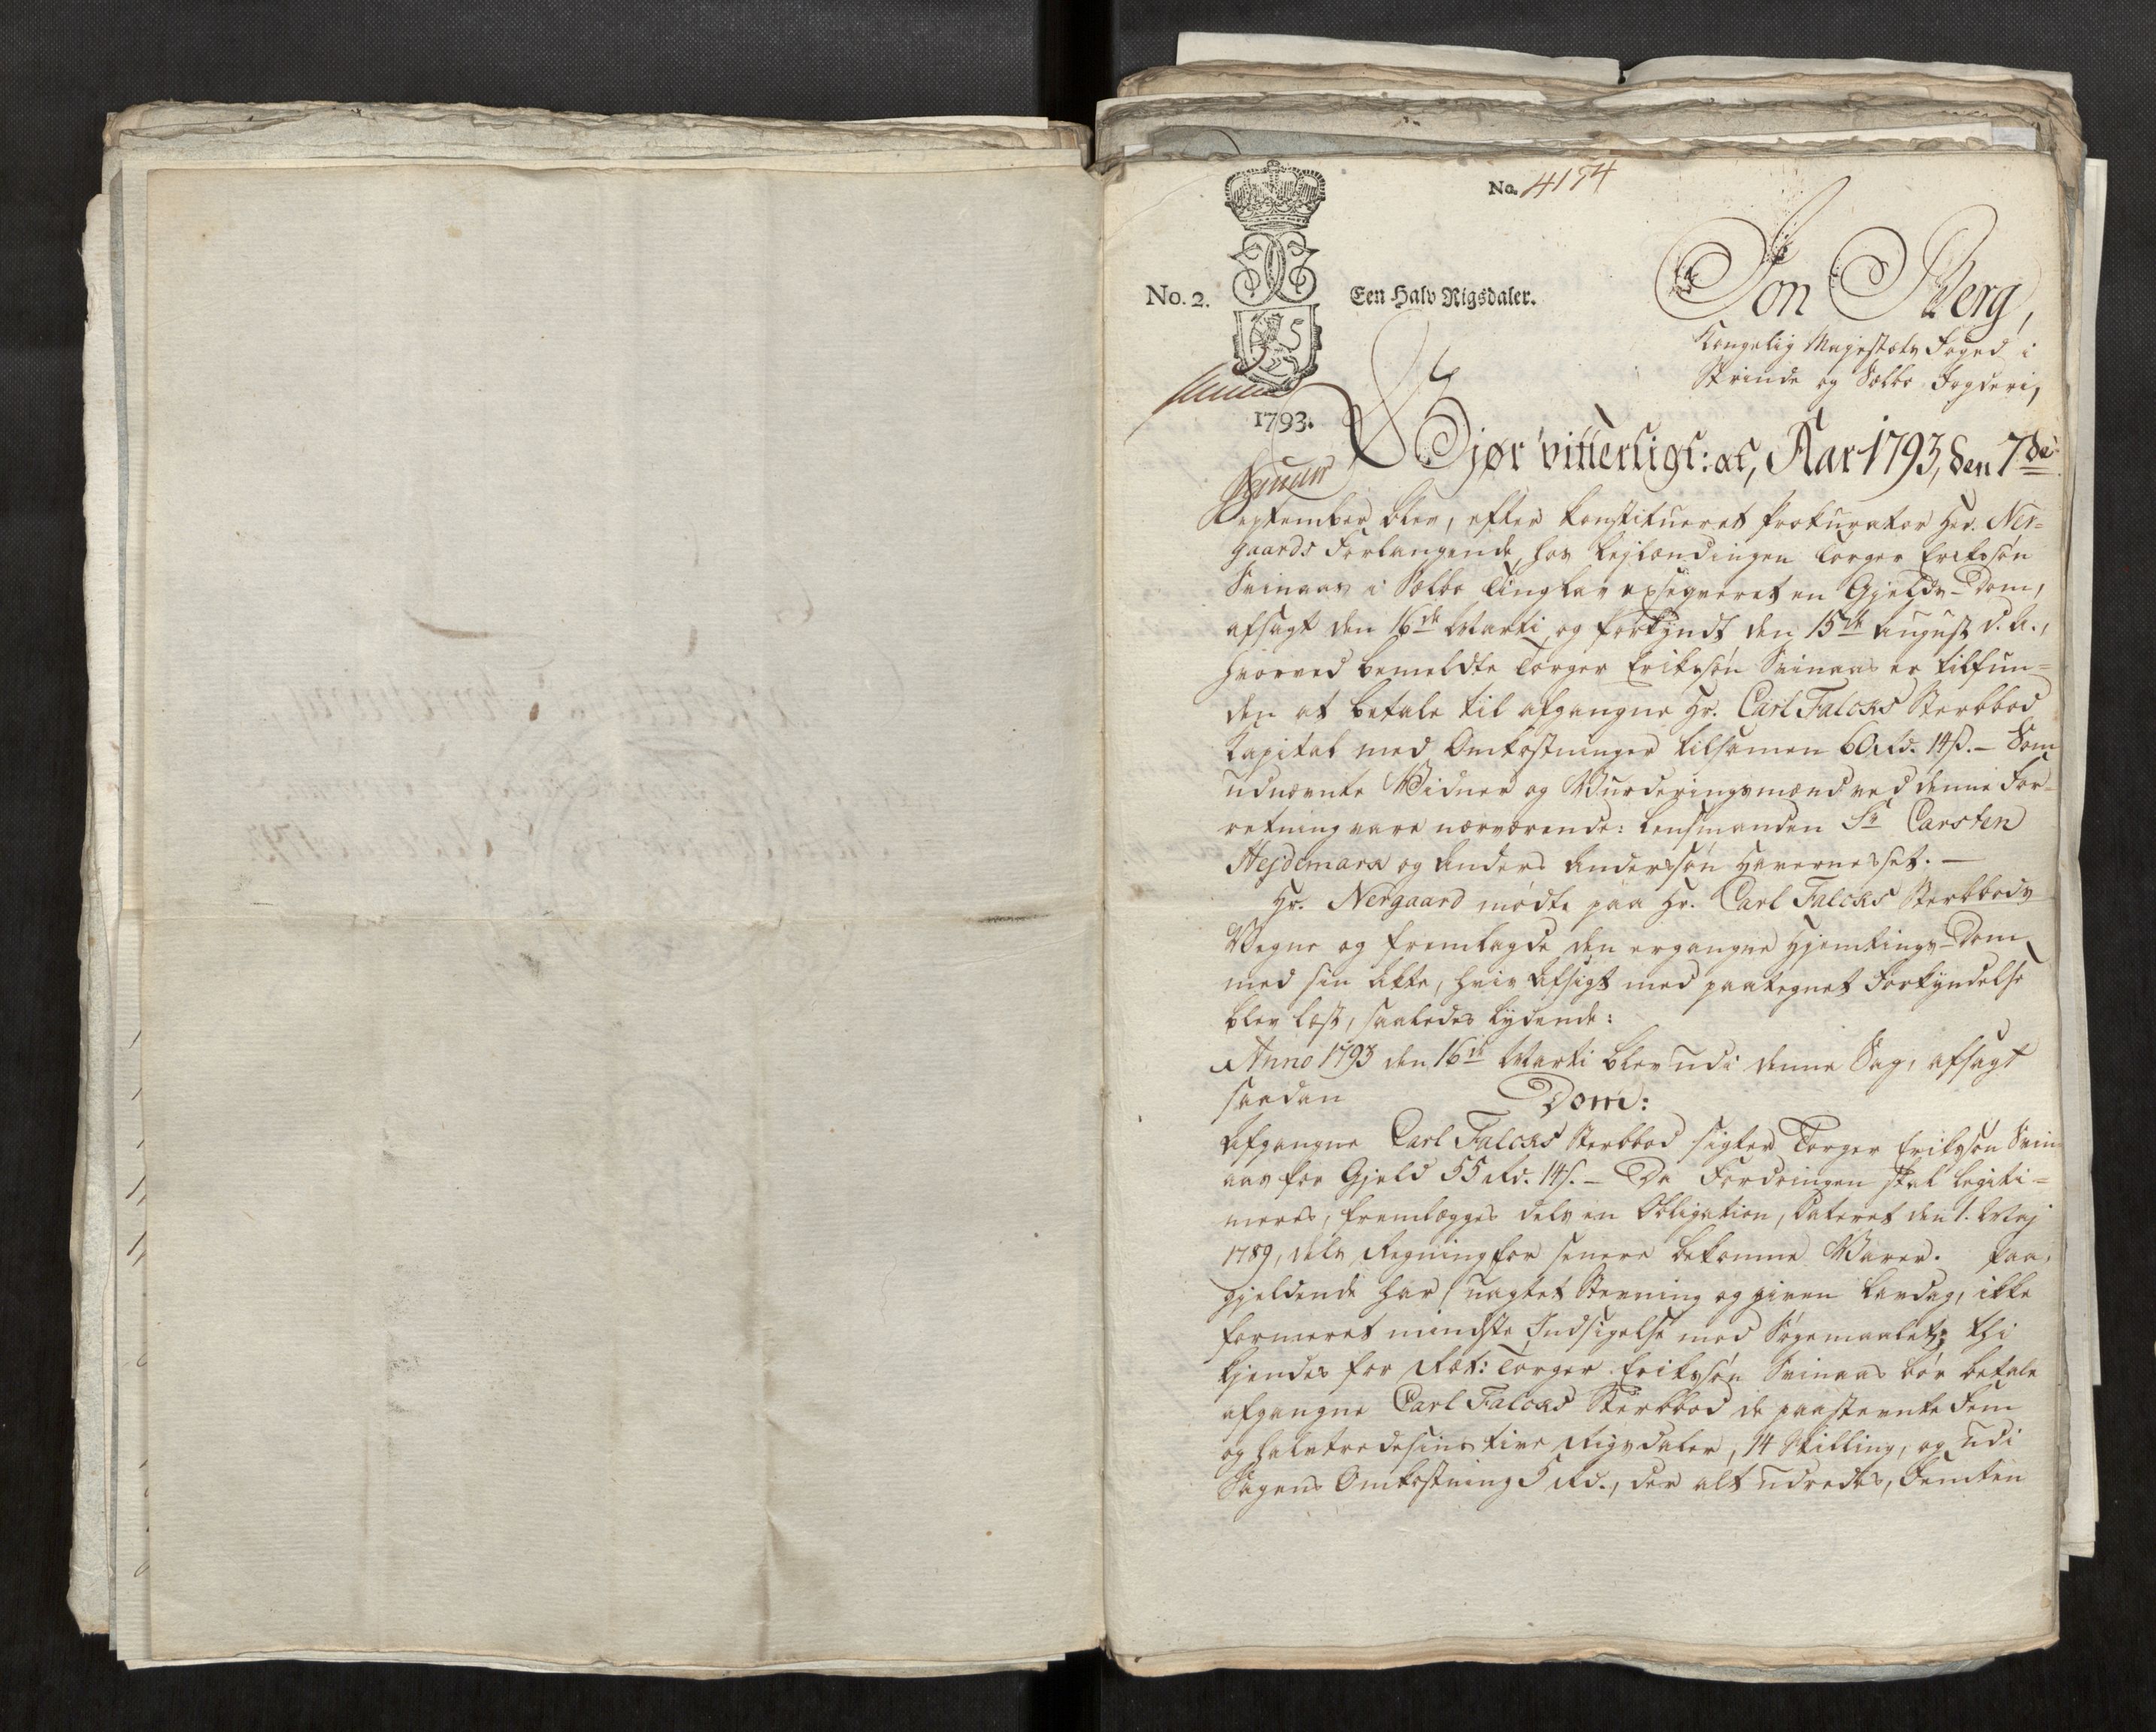 No. 4174
No. 2.
Een Halv Rigsdaler.
1793.
Jon Berg,
Kongelig Majestæts Foged i
Strinde og Sælbo Fogderi,
Gjør vitterligt: at, Aar 1793, den 7de
September blev, efter konstitueret Prokurator Hr. Ner=
gaards Forlangende, hos Lejlændingen Torger Eriksøn
Svinaas i Sælbo Tinglav exseqveret en Gjelds-Dom,
afsagt den 16de Marti og forkyndt den 15de August d. A.,
hvorved bemeldte Torger Eriksøn Svinaas er tilfun=
den at betale til afgangne Hr. Carl Falcks Sterbbod
Kapital med Omkostninger tilsamen 60 Rd. 14 s. — Som
udnævnte Vidner og Vurderingsmænd ved denne For=
retning vare nærværende: Lensmanden Sr Carsten
Hejdemark og Anders Andersøn Havernesset. —
Hr. Nergaard mødte paa Hr. Carl Falcks Sterbbods
Vegne og fremlagde den ergangne Hjemtings-Dom
med sin Akte, hvis Afsigt med paategnet Forkyndelse
blev læst, saaledes lydende:
Anno 1793 den 16de Marti blev udi denne Sag, afsagt
saadan Dom:
Afgangne Carl Falcks Sterbbod sigter Torger Eriksøn Svin
aas for Gjeld 55 Rd. 14 s. — Da Fordringen skal legiti=
meres, fremlægges dels en Obligation, dateret den 1. Maj
1789, dels Regning for senere bekomne Varer. Paa=
gjeldende har, uagtet Stevning og given Lavdag, ikke
formeret mindste Indsigelse mod Søgemaalet; thi
kjendes for Ræt: Torger Eriksøn Svinaas bør betale
afgangne Carl Falcks Sterbbod de paastevnte Fem
og halvtredesinstive Rigsdaler, 14 Skilling, og udi
Sagens Omkostning 5 Rd., der alt udredes, Femten